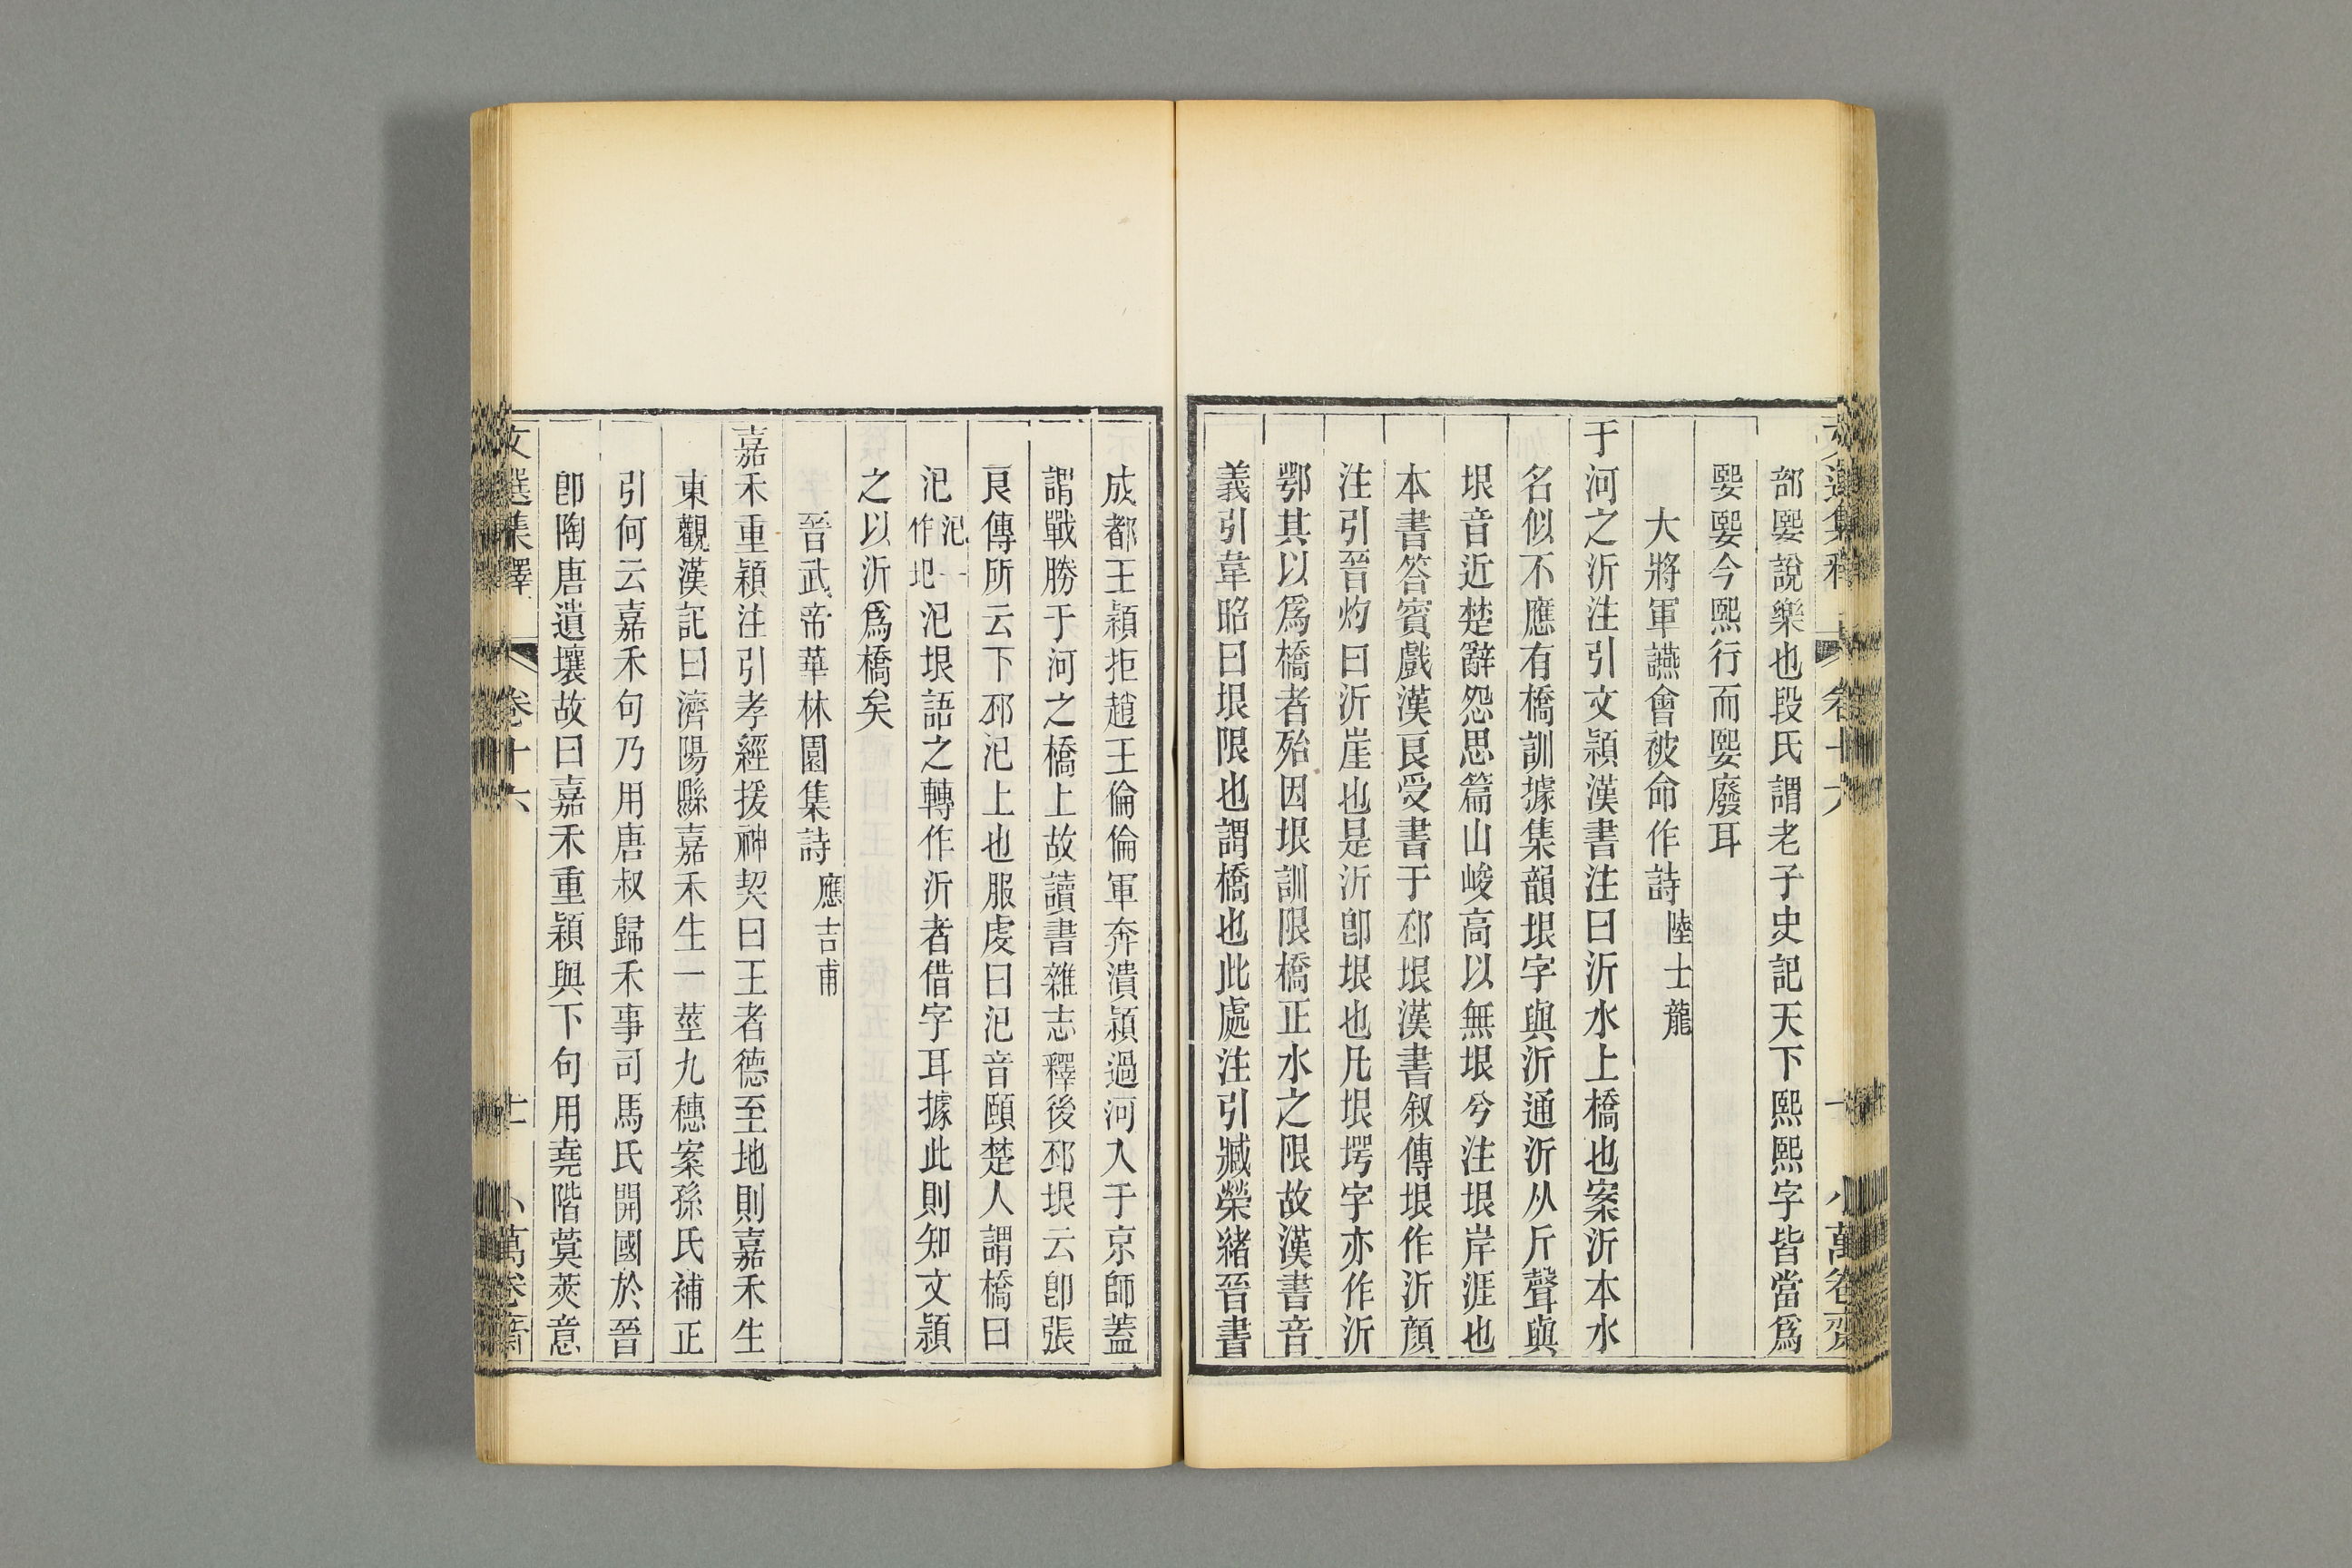 部媐說樂也段氏謂老子史記天下熙熙字皆當爲
媐媐今熙行而媐廢耳
大將軍讌會被命作詩 陸士龍
于河之沂注引文穎漢書注曰沂水上橋也案沂本水
名似不應有橋訓據集韻垠字與沂通沂从斤聲與
垠音近楚辭怨思篇山峻高以無垠兮注垠岸涯也
本書答賓戲漢良受書于邳垠漢書叙傳垠作沂顏
注引晉灼曰沂崖也是沂卽垠也凡垠堮字亦作沂
鄂其以爲橋者殆因垠訓限橋正水之限故漢書音
義引韋昭曰垠限也謂橋也此處注引臧榮緒晉書
成都王穎拒趙王倫倫軍奔潰穎過河入于京師蓋
謂戰勝于河之橋上故讀書雜志釋後邳垠云卽張
良傳所云下邳汜上也服虔曰汜音頤楚人謂橋曰
汜汜一作圯汜垠語之轉作沂者借字耳據此則知文穎
之以沂爲橋矣
晉武帝華林園集詩 應吉甫
嘉禾重穎注引孝經援神契曰王者德至地則嘉禾生
東觀漢記曰濟陽縣嘉禾生一莖九穗案孫氏補正
引何云嘉禾句乃用唐叔歸禾事司馬氏開國於晉
卽陶唐遺壤故曰嘉禾重穎與下句用堯階蓂莢意
文選集釋 卷十六 十一 小萬卷齋